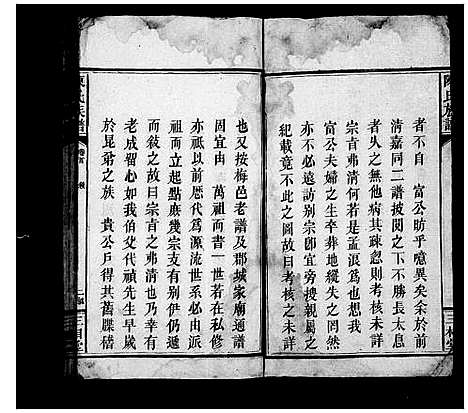 者不自 富公昉乎噫異矣余於前
清嘉同二譜披閱之下不勝長太息
者久之無他病其疎忽則考核未詳
宗旨弗清何若是孟浪為也想我
富公夫婦之生卒葬地縱失之罔然
亦不必遠訪別宗卽宜旁搜親屬之
紀載竟不此之圖故曰考核之未詳
也又按梅邑老譜及郡城家廟通譜
固宜由 萬祖而書一世若在私修
亦祗以前歷代為源流世系必由派
祖而立起點庶幾宗支有別伊仍遞
而敘之故曰宗旨之弗清也乃幸有
老成留心如我伯交代禎先生早歲
於昆弟之族 貴公戶得其舊牒
陳氏族譜
卷首